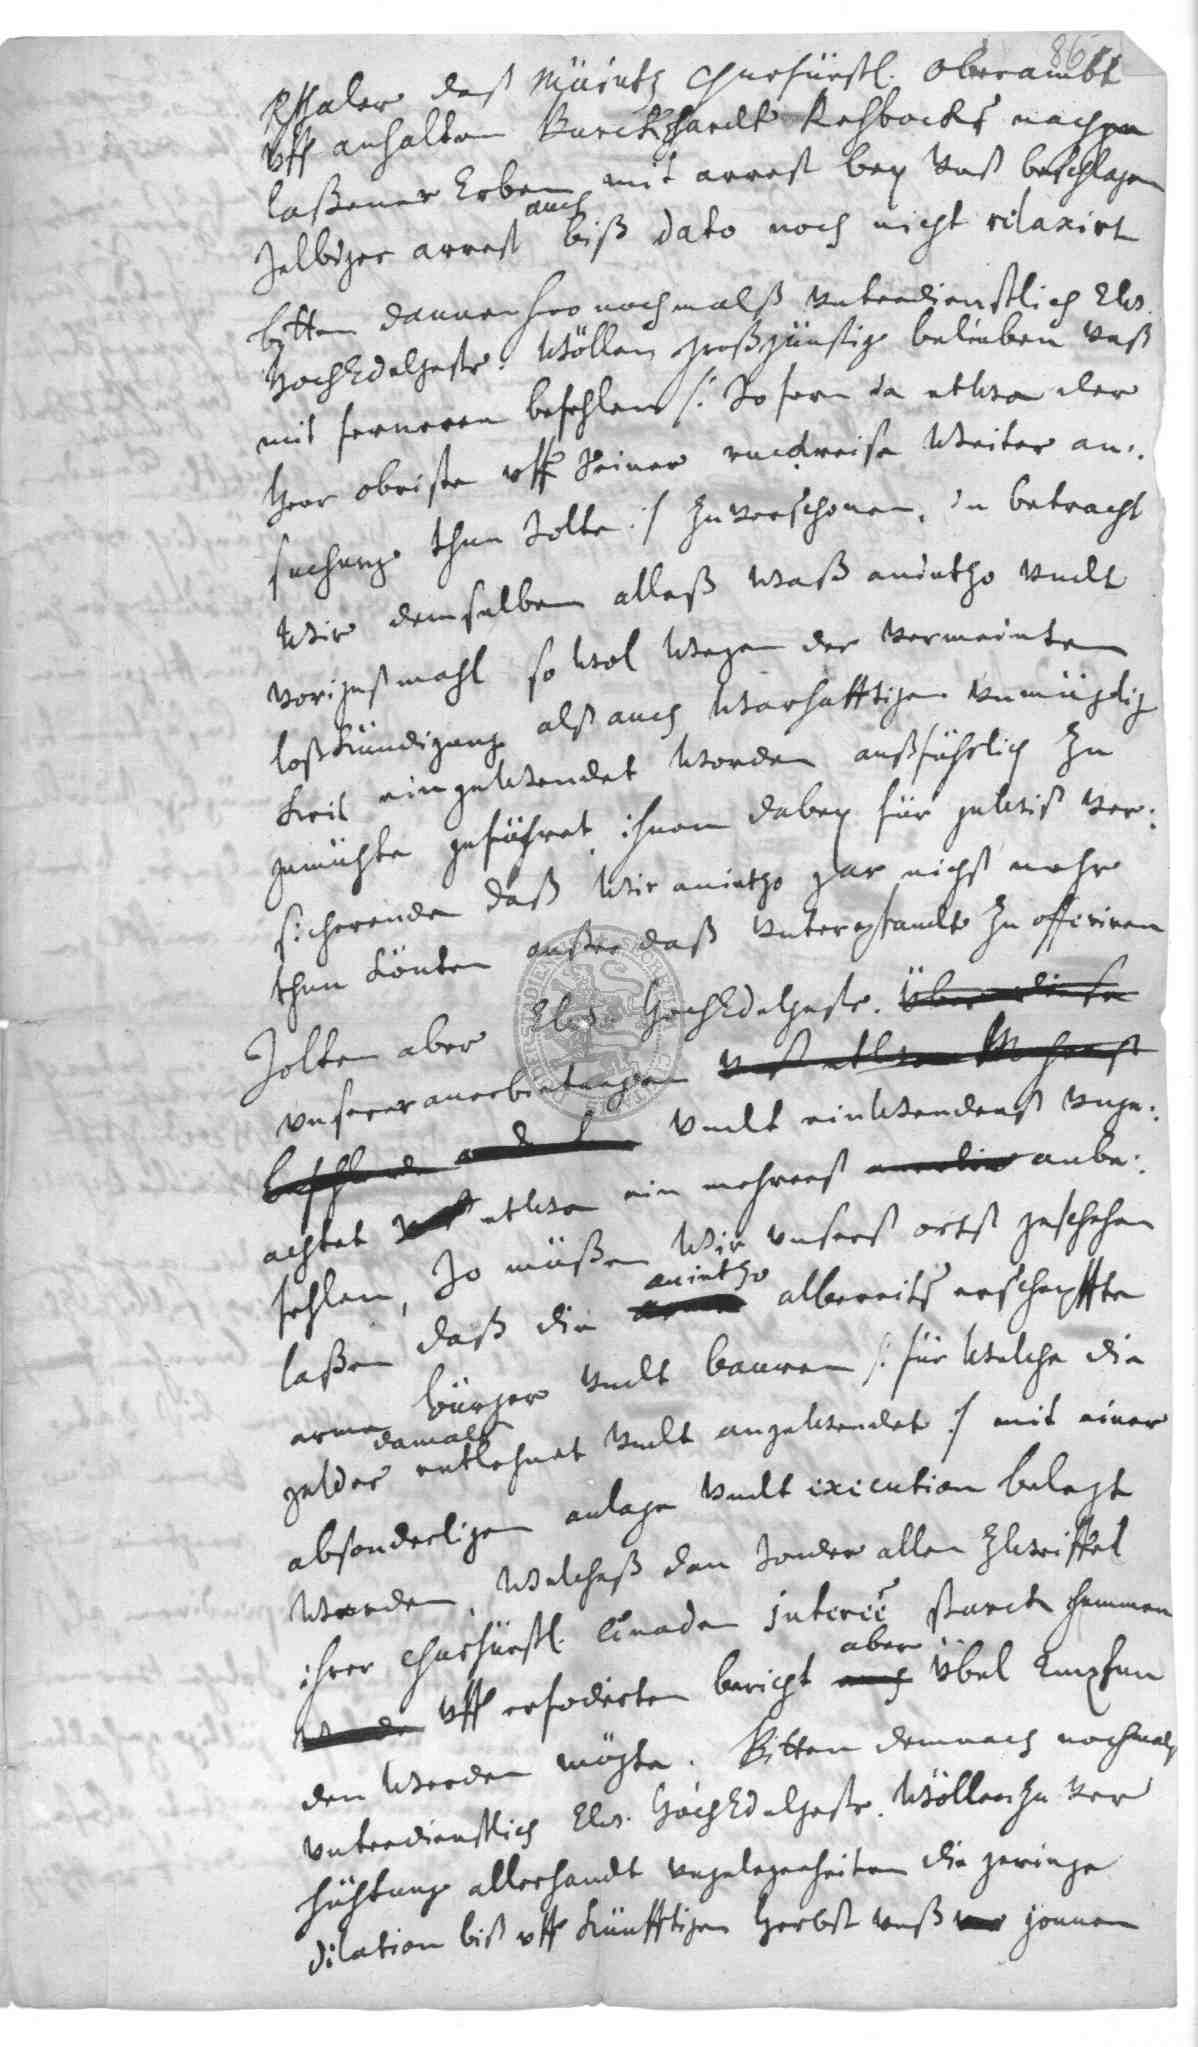 86
Rthaler daß Mäintz Churfürstl. Oberambt
Uff anhalten Burckhardt Rehbocks nachge
laßener Erben mit arrest bey Unß beschlagen
selbiger arrest auch biß dato noch nicht relaxirt
bitten dannenhero nochmalß unterdienstlich Ew.
HochEdelgestr. Wöllen großgünstig belieben unß
mit ferneren befehlen /: so fern da etwa der
Herr obriste uff seiner ruckreise weiter an:
suchung thun solte :/ zuverschonen, in betracht
wir demselben alleß waß anietzo undt
vorigeßmahl so wol wegen der vermeinten
loßkündigung alß auch warhafftigen unmüglig
keit eingewendet worden außführlich zu
gemühte geführet, ihnen dabey für gewiß ver:
sicherende daß wir anietzo gar nicht mehr
thun könten außer daß unterpfandt zu offeriren
Solten aber Ew. HochEdelgestr. über diese
unserer anerbietungen
undt einwendenß unge:
achtet etwa ein mehrers anbe:
fehlen, so müßen wir unsers orts geschehen
laßen daß die anietzo albereits erschepffte
arme bürger undt bauren /: für welche die
gelder damalß entlehnet undt angewendet :/ mit einer
absonderligen anlage undt execution belegt
werden, welcheß dan sonder allen zweiffel
ihrer Churfürstl. Gnaden interee starck hemmen
uff erfoderten bericht aber übel empfun
den werden mögte. Bitten demnach nochmalß
unterdienstlich Ew. HochEdelgestr. wöllen zu ver
hühtung allerhandt ungelegenheiten die geringe
dilation biß uff künfftigen Herbst unß gönnen